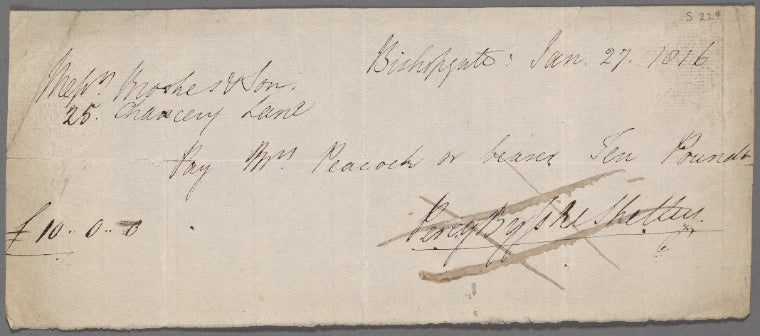 S 224
Bishopgate: Jan. 27. 1816
Messrs. Brookes & Son.
25. Chancery Lane
Pay Mrs Peacock or bearer Ten Pounds
£ 10 .. 0 .. 0
Percy Bysshe Shelley.